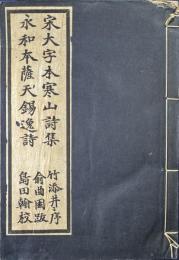 宋大字本寒山詩集
永和本薩天錫逸詩
竹添井々序
俞曲園跋
島田翰校